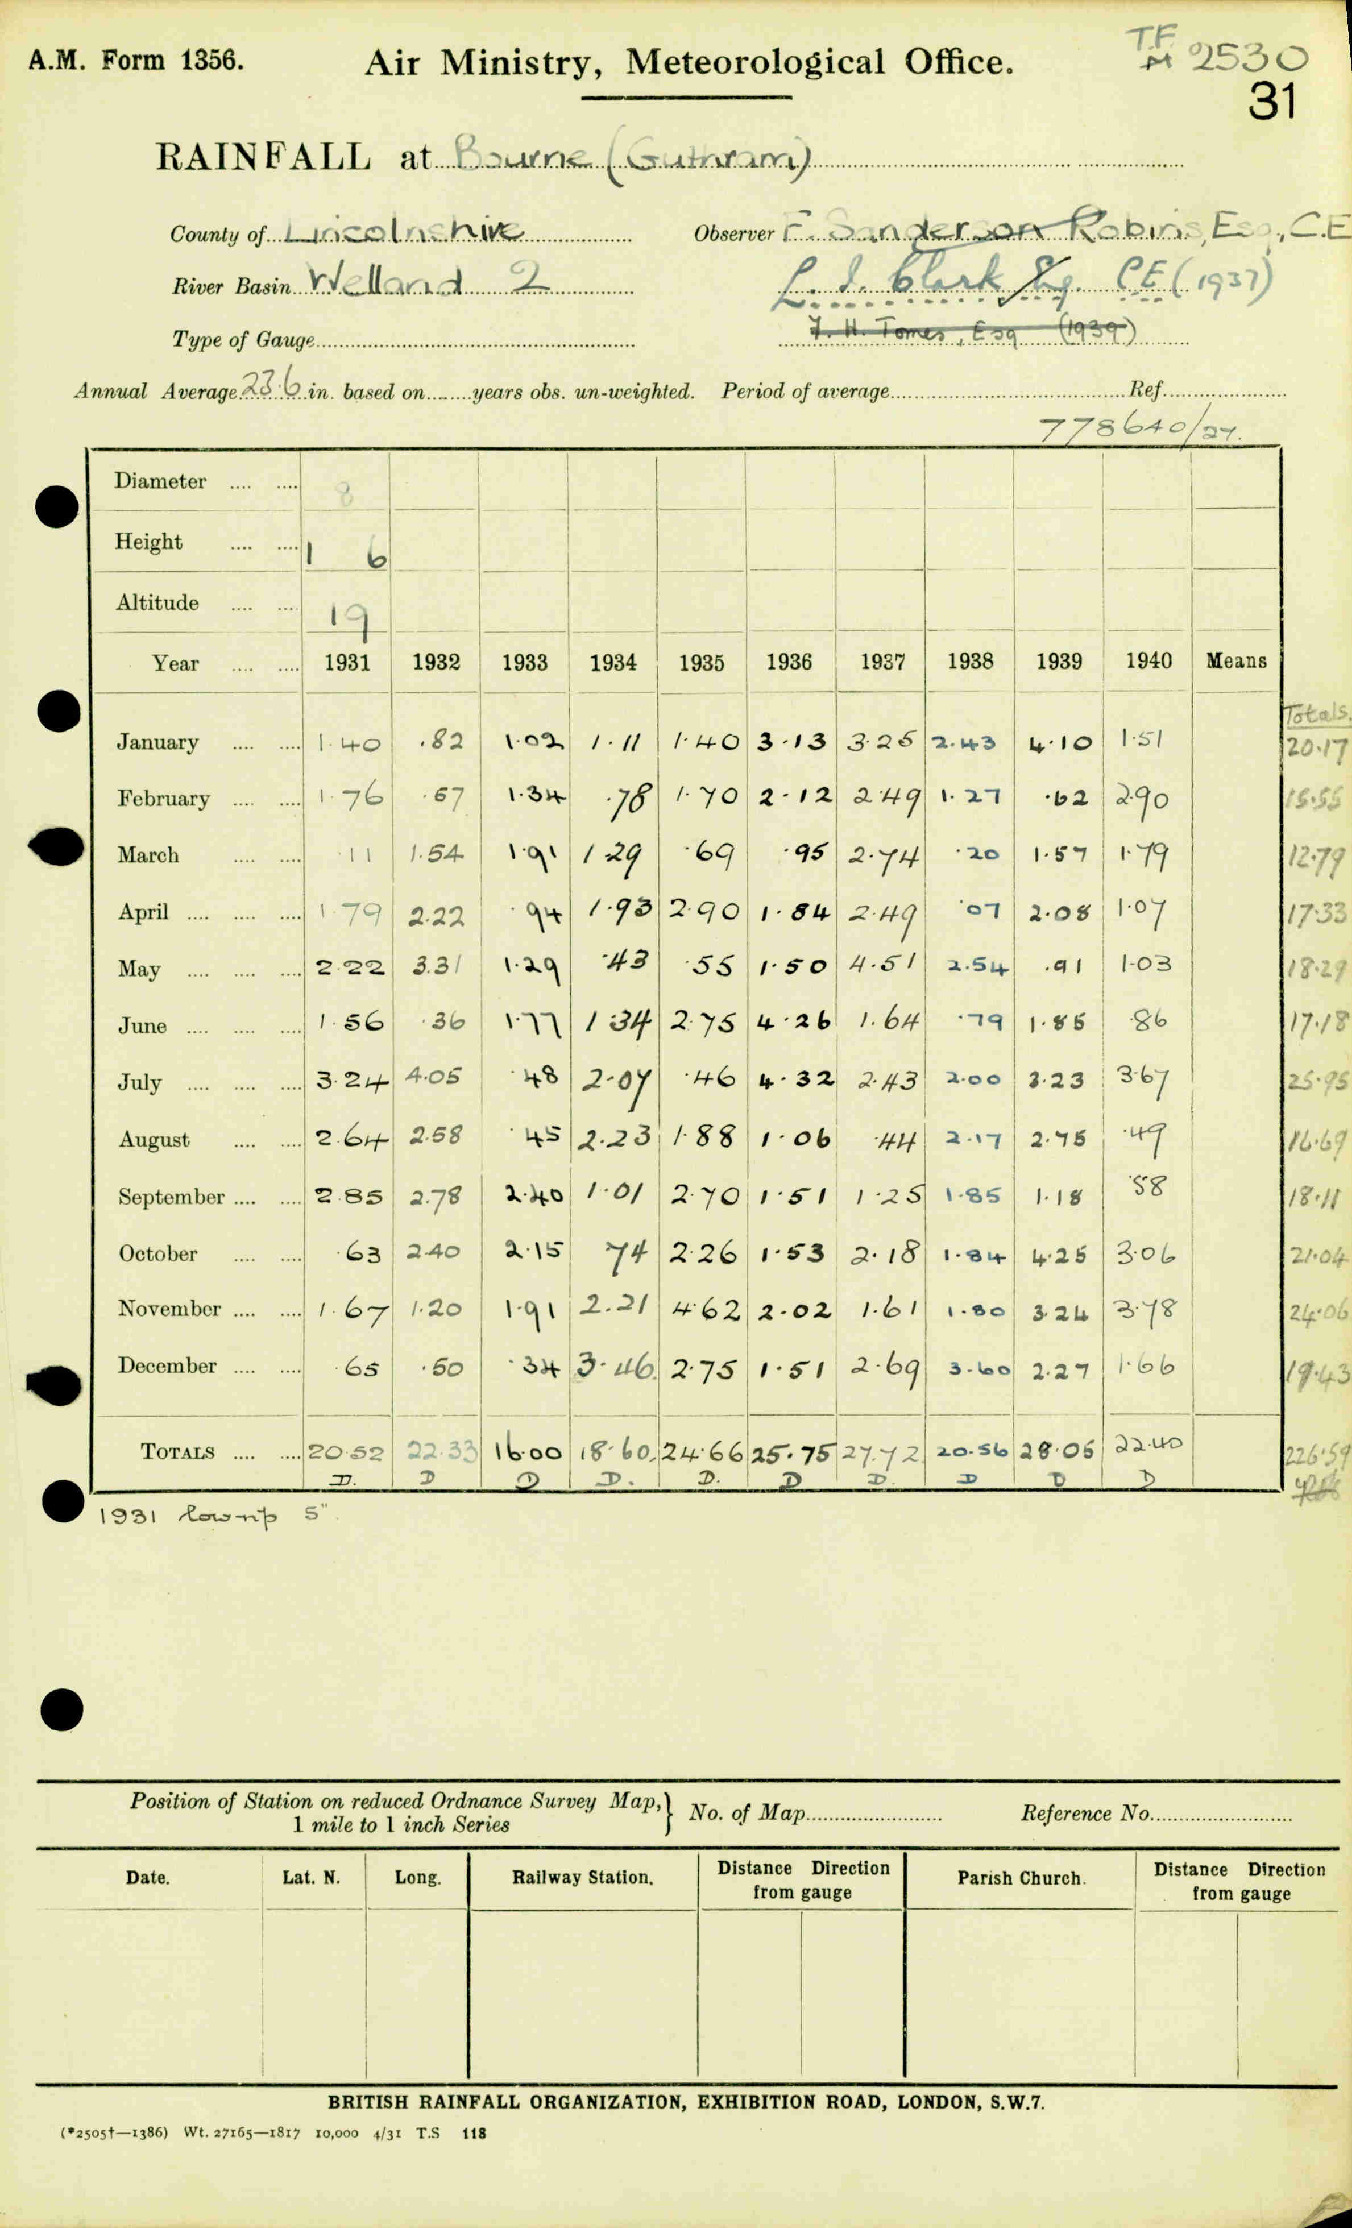 A.M. Form 1356.
Air Ministry, Meteorological Office.
TF 2530
31
RAINFALL at Bourne (Guthram)
County of Lincolnshire Observer F. Sanderson Robins, Esq., C.E
River Basin Welland 2 L. J. Clark Esq. CE (1937)
Type of Gauge F. H. Tomes, Esq (1939)
Annual Average 23.6 in. based on years obs. un-weighted. Period of average Ref.
778640/27.
Diameter 8
Height 1 6
Altitude 19
Year 1931 1932 1933 1934 1935 1936 1937 1938 1939 1940 Means
Totals.
January 1.40 .82 1.02 1.11 1.40 3.13 3.25 2.43 4.10 1.51 20.17
February 1.76 .57 1.34 .78 1.70 2.12 2.49 1.27 .62 2.90 15.55
March .11 1.54 1.91 1.29 .69 .95 2.74 .20 1.57 1.79 12.79
April 1.79 2.22 .94 1.93 2.90 1.84 2.49 .07 2.08 1.07 17.33
May 2.22 3.31 1.29 .43 .55 1.50 4.51 2.54 .91 1.03 18.29
June 1.56 .36 1.77 1.34 2.75 4.26 1.64 .79 1.85 .86 17.18
July 3.24 4.05 .48 2.07 .46 4.32 2.43 2.00 3.23 3.67 25.95
August 2.64 2.58 .45 2.23 1.88 1.06 .44 2.17 2.75 .49 16.69
September 2.85 2.78 2.40 1.01 2.70 1.51 1.25 1.85 1.18 .58 18.11
October .63 2.40 2.15 .74 2.26 1.53 2.18 1.84 4.25 3.06 21.04
November 1.67 1.20 1.91 2.21 4.62 2.02 1.61 1.80 3.24 3.78 24.06
December .65 .50 .34 3.46 2.75 1.51 2.69 3.60 2.27 1.66 19.43
TOTALS 20.52 22.33 16.00 18.60 24.66 25.75 27.72 20.56 28.05 22.40 226.59
D. D D D. D. D D. D D D
1931 low np 5"
Position of Station on reduced Ordnance Survey Map, } No. of Map Reference No.
1 mile to 1 inch Series
Date. Lat. N. Long. Railway Station. Distance Direction from gauge Parish Church. Distance Direction from gauge
BRITISH RAINFALL ORGANIZATION, EXHIBITION ROAD, LONDON, S.W.7.
(*2505†—1386) Wt. 27165—1817 10,000 4/31 T.S 118